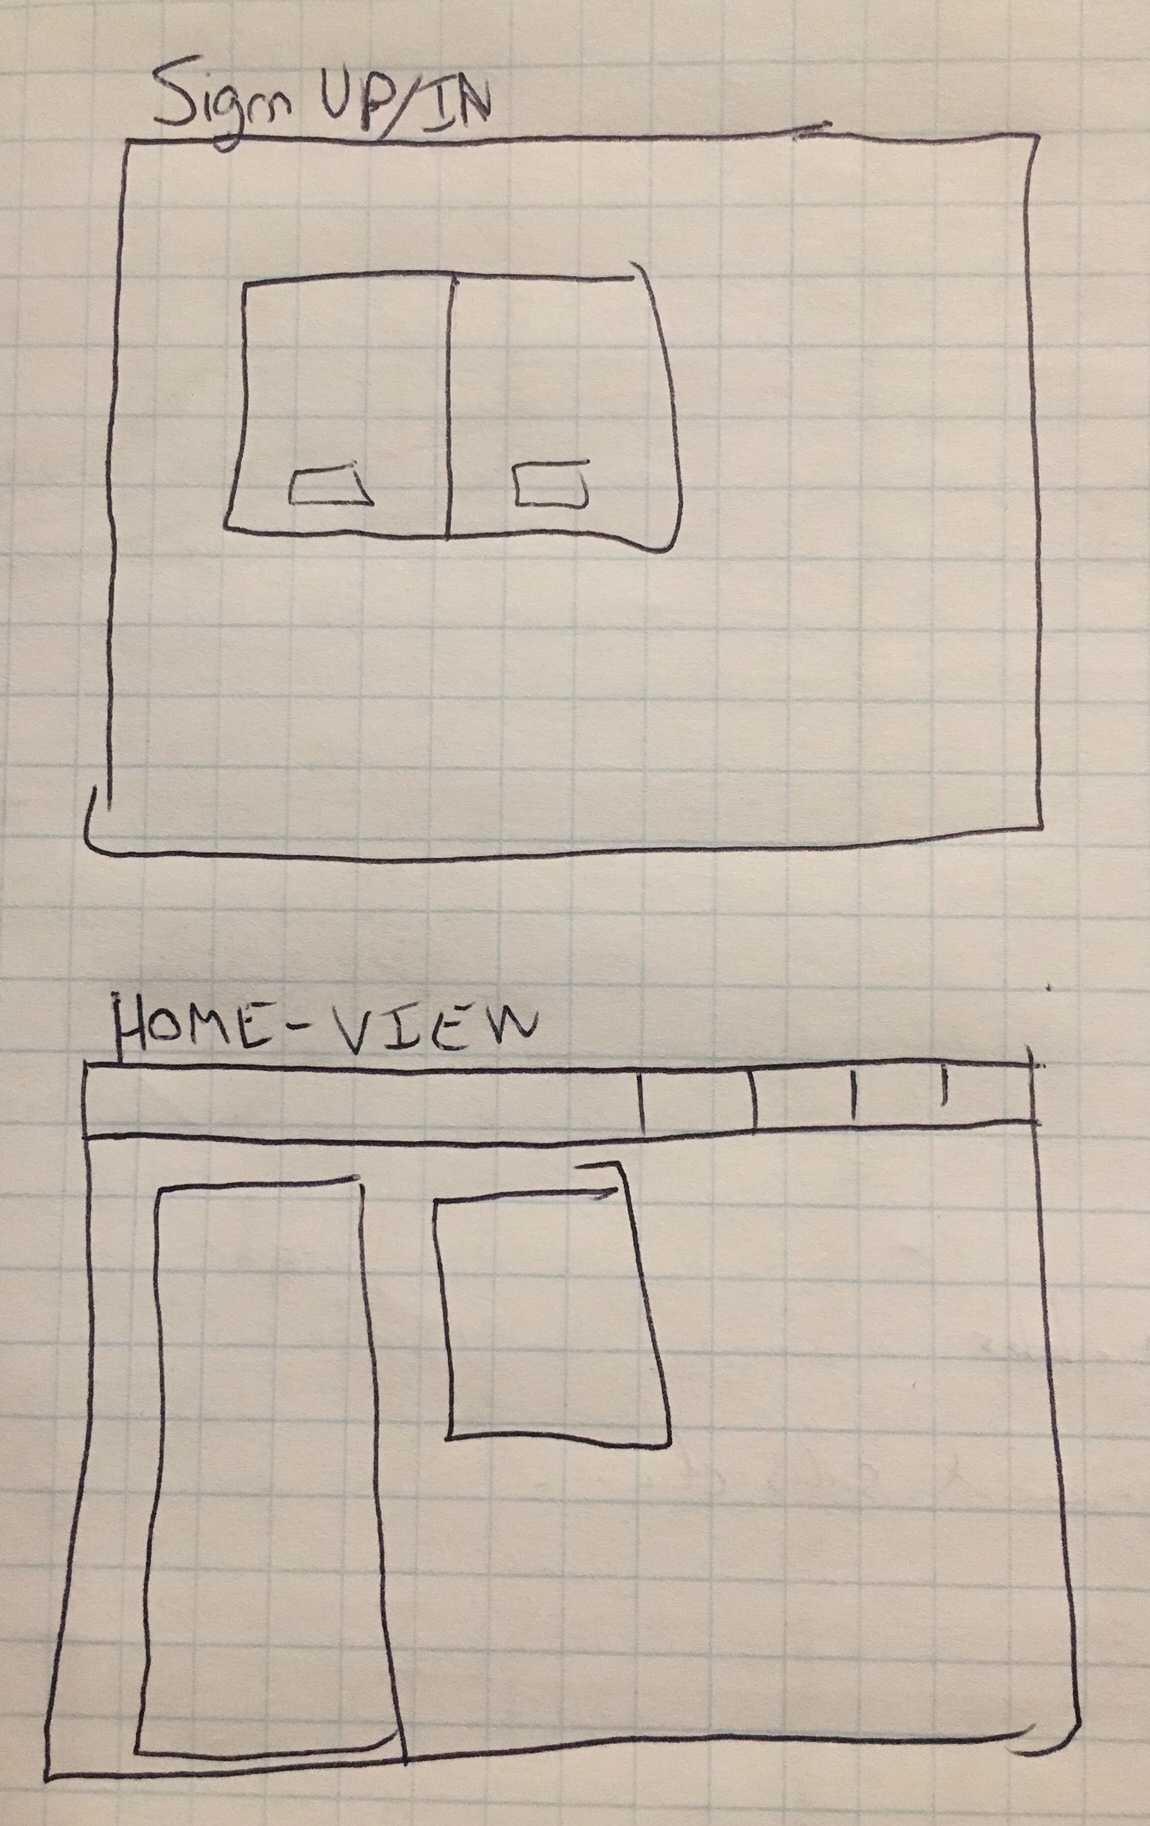 Sign UP/IN
HOME-VIEW